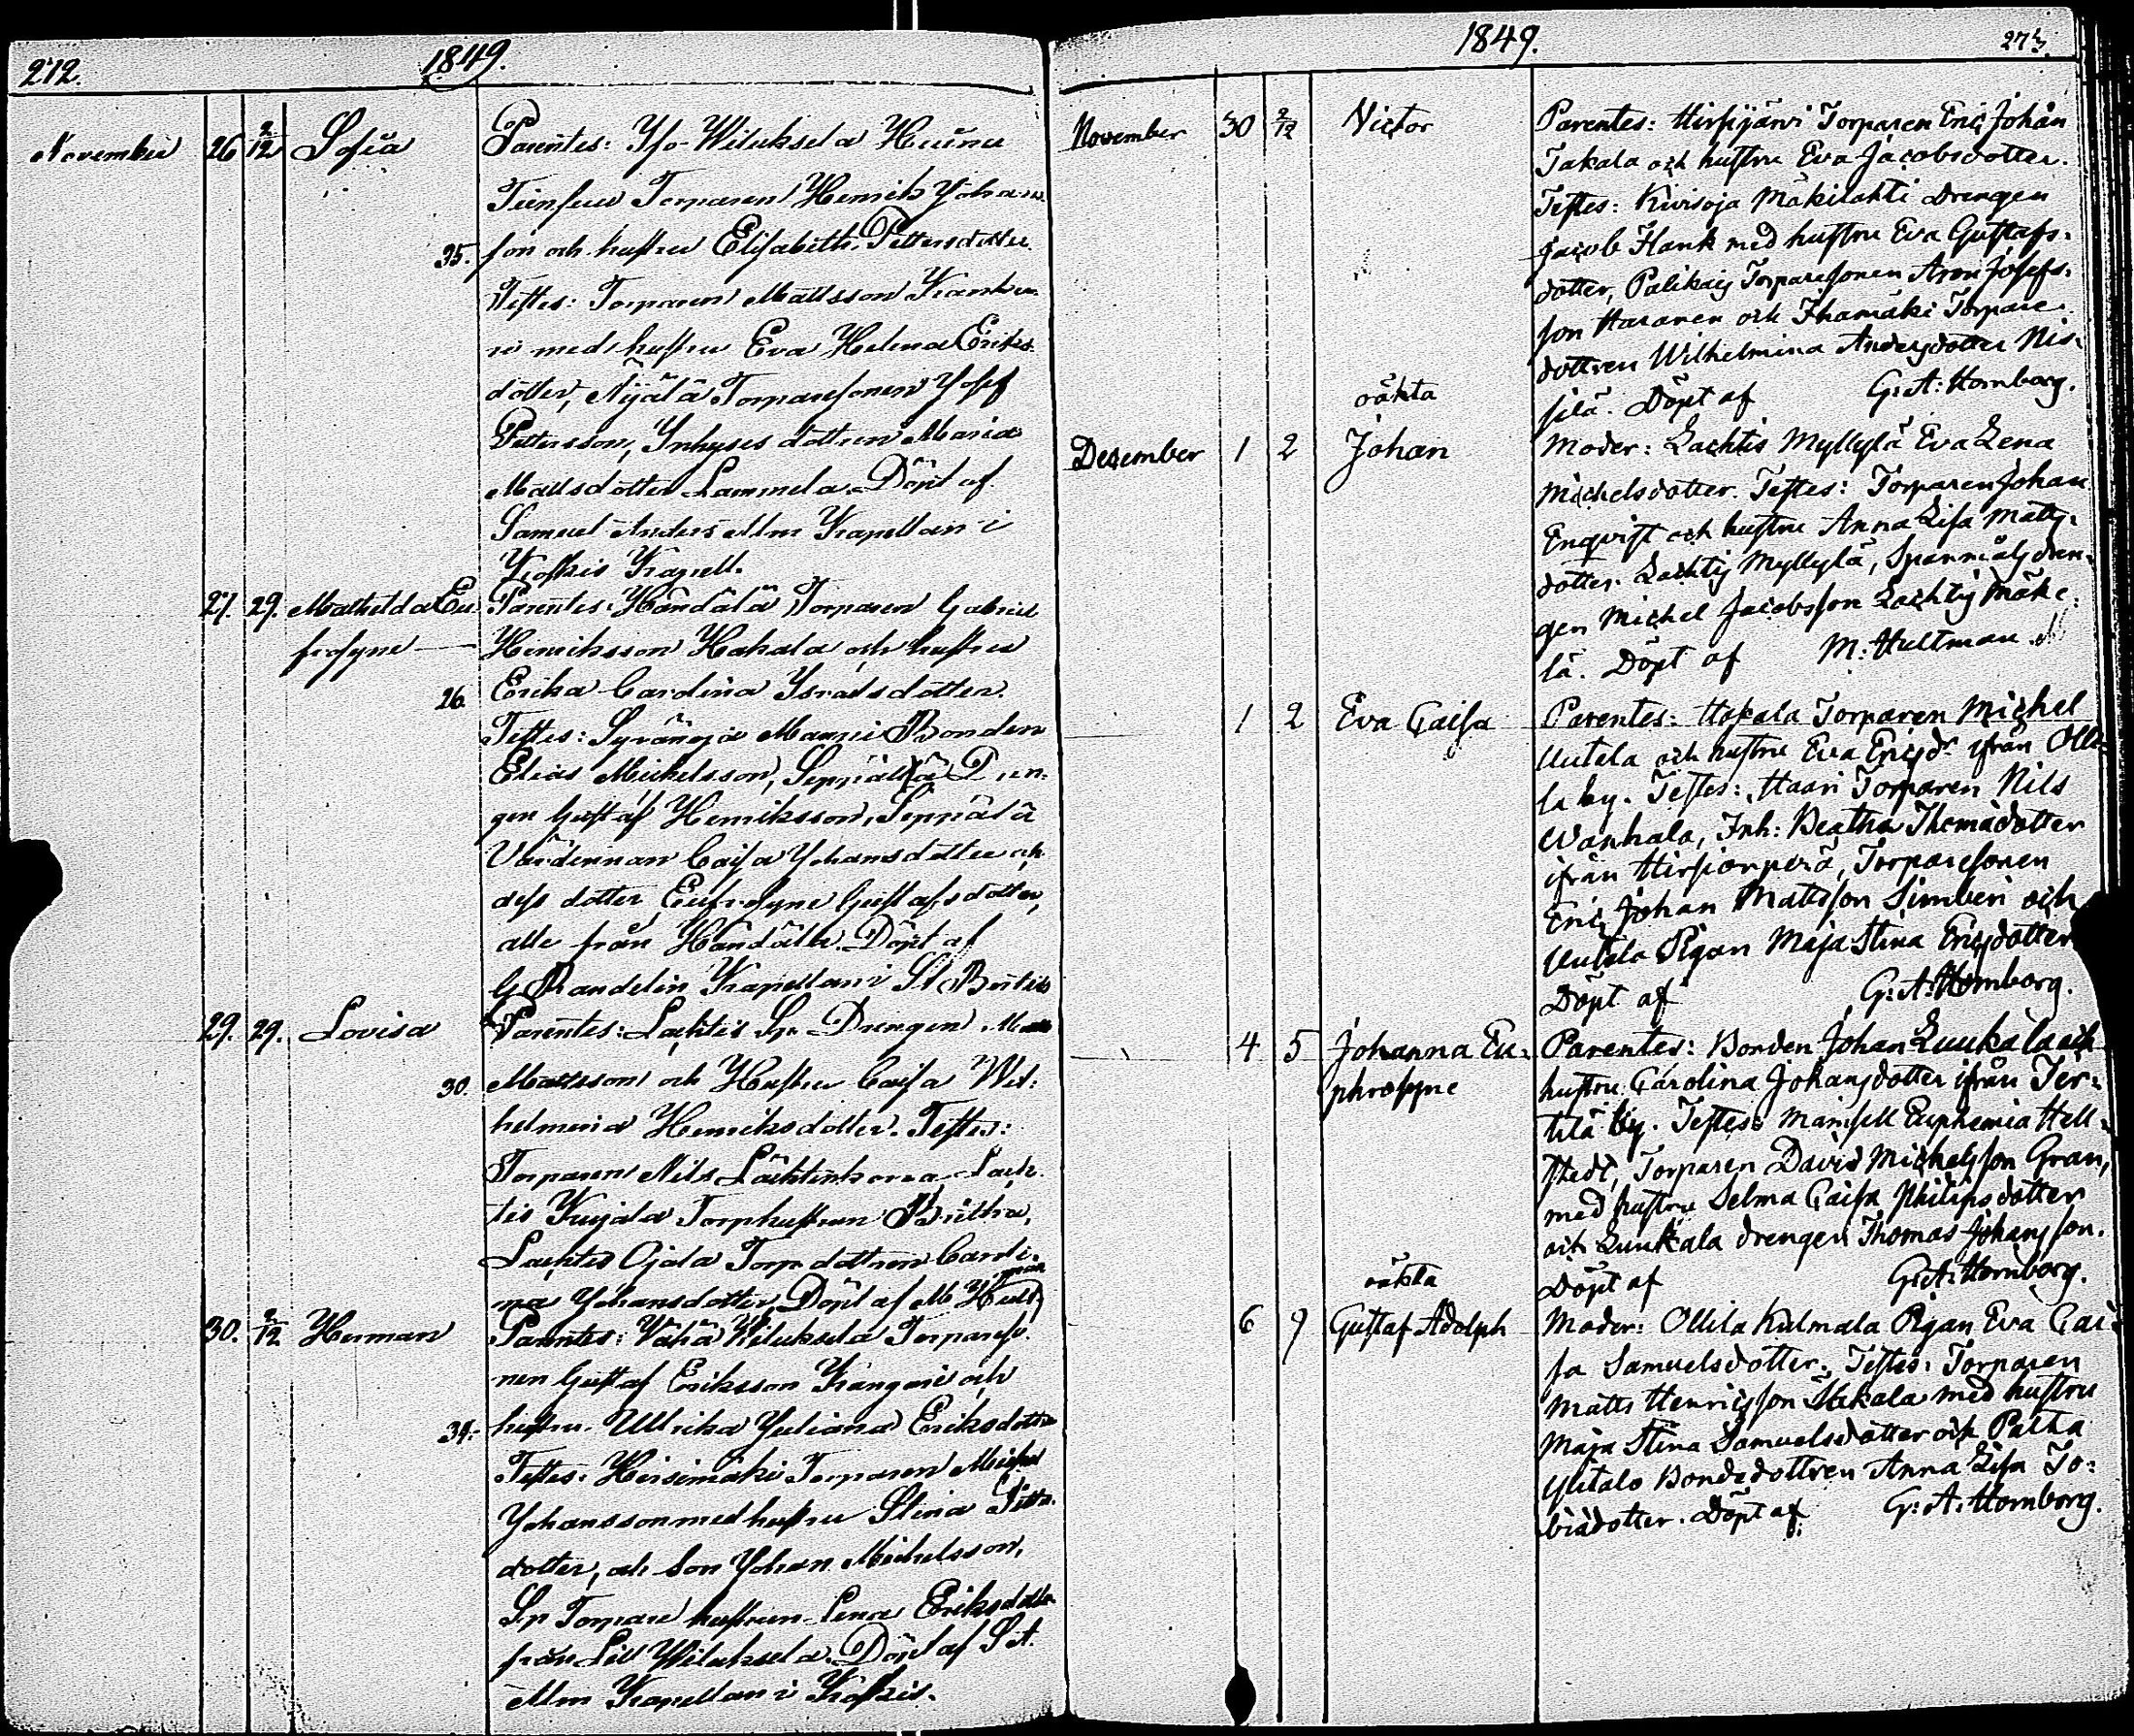 272. 1849.
November 26 2/12 Sofia Parentes: Yso-Wiluksela
Torparen Henrik Johans
35. son och hustru Elisabeth Pettersdotter.
Testes: Torparen Mattsson
med hustru Eva Helena Eriks
dotter, Torparesonen Josef
Pettersson, Inhyses dottren Maria
Mattsdotter Lammela. Döpt af
Samuel Anders Alm Kapellan i
Koskis Kapell.
27. 29. Mathilda Eu Parentes: Torparen Gabriel
frosyne Henriksson Hakala och hustru
26. Erika Carolina Israelsdotter.
Testes: Bonden
Elias Mickelsson, Seppälä Dren-
gen Gustaf Henriksson, Seppälä
Värdinnan Caisa Johansdotter och
dess dotter Eufrosyne Gustafsdotter,
alle från Döpt af
G Randelin Kapellan i St Bertils
29. 29. Lovisa Parentes: Lachtis Sp. Drengen
30. Mattsson och Hustru Caisa Wil:
helmina Henriksdotter. Testes:
Torparen Nils Lach
tis Kujala Torphustrun
Lachtis Ojala Torp dottren Caroli-
na Johansdotter, Döpt af M Hultman
30. 2/12 Herman Parentes: Vähä Wiluksela Torpareso
nen Gustaf Eriksson Kangari och
34. hustru Ulrika Juliana Eriksdotter
Testes: Hirsimäki Torparen Michel
Johansson med hustru Stina
dotter, och Son Johan Michelsson,
Sp Torpare hustrun Lena Eriksdotter
från Lill Wiluksela. Döpt af S A.
Alm Kapellan i Koskis.
1849. 273.
November 30 2/12 Victor Parentes: Hirsijärvi Torparen Eric Johan
Takala och hustru Eva Jacobsdotter.
Testes: Kivisoja Mäkilähti Drengen
Jacob Flank med hustru Eva Gustafs-
dotter, Palikais Torparesonen Aron Josefs-
son Haranen och Ihamäki Torpare-
dottren Wilhelmina Andersdotter Nis-
oäkta silä. Döpt af G: A: Hornborg.
Desember 1 2 Johan Moder: Lachtis Myllylä Eva Lena
Michelsdotter. Testes: Torparen Johan
Enqvist och hustru Anna Lisa Matts-
dotter Lachtis Myllylä, Spannmålsdren-
gen Michel Jacobsson Lachtis Mäke-
lä. Döpt af M: Hultman.
1 2 Eva Caisa Parentes: Torparen Michel
Uutela och hustru Eva Ericsdr ifrån Olli-
la by. Testes: Haari Torparen Nils
Wanhala, Inh: Beatha Thomasdotter
ifrån Hirsiorperä, Torparesonen
Eric Johan Mattsson Simberi och
Uutela Pigan Maja Stina Ericsdotter
Döpt af G: A: Hornborg.
4 5 Johanna Eu- Parentes: Bonden Johan Luukala och
phrosyne hustru Carolina Johansdotter ifrån Ter-
tilä by. Testes: Mamsell Euphemia Hell-
stedt, Torparen David Michelsson Gran,
med hustru Selma Caisa Philipsdotter
och Luukala drengen Thomas Johansson.
oäkta Döpt af G: A: Hornborg.
6 9 Gustaf Adolph Moder: Ollila Kulmala Pigan Eva Cai-
sa Samuelsdotter. Testes: Torparen
Matts Henricsson med hustru
Maja Stina Samuelsdotter och Palha
Ylitalo Bondedottren Anna Lisa To-
biasdotter. Döpt af G: A: Hornborg.